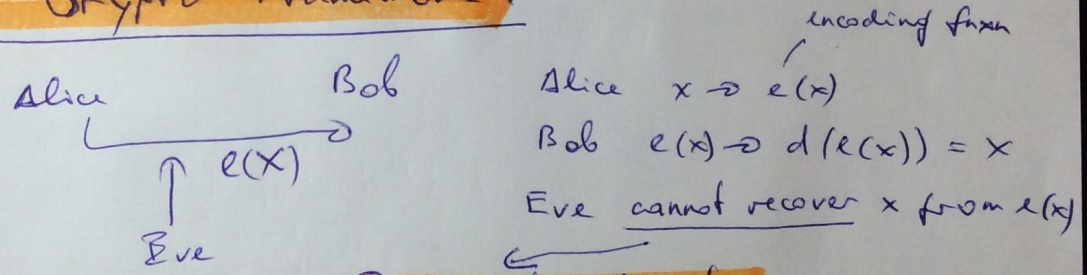 Crypto
Alice
Bob
e(x)
Eve
encoding fnxn
Alice x → e(x)
Bob e(x) → d(e(x)) = x
Eve cannot recover x from e(x)